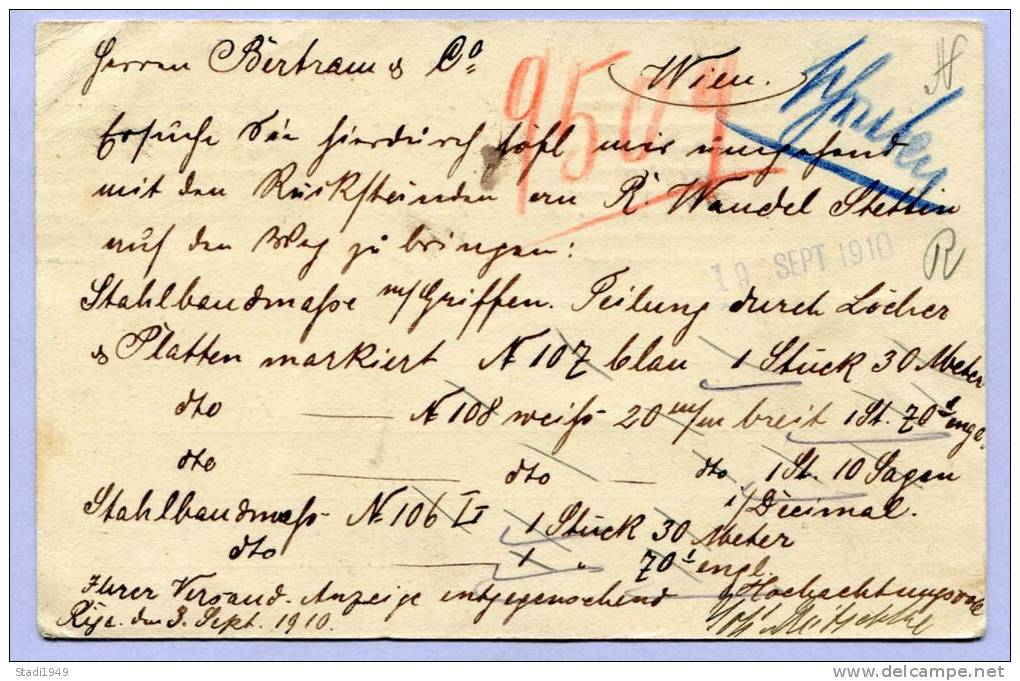 Herren Bertram & Co
Wien.
9509
N
Ersuche Sie hierdurch höfl mir umgehend
mit den Rückständen an R. Wandel Stettin
auf den Weg zu bringen:
19 SEPT 1910
R
Stahlbandmaße m/Griffen. Teilung durch Löcher
& Platten markiert N 107 blau 1 Stück 30 Meter
dto N 108 weiß 20 m/m breit 1 St. 70' engl.
dto dto dto 1 St. 10 Sagen
i/Decimal.
Stahlbandmaß N 106 1 Stück 30 Meter
dto 1 " 70' engl.
Ihrer Versand-Anzeige entgegensehend Hochachtungsvoll
Riga. den 3. Sept. 1910.
Stadi1949
www.delcampe.net